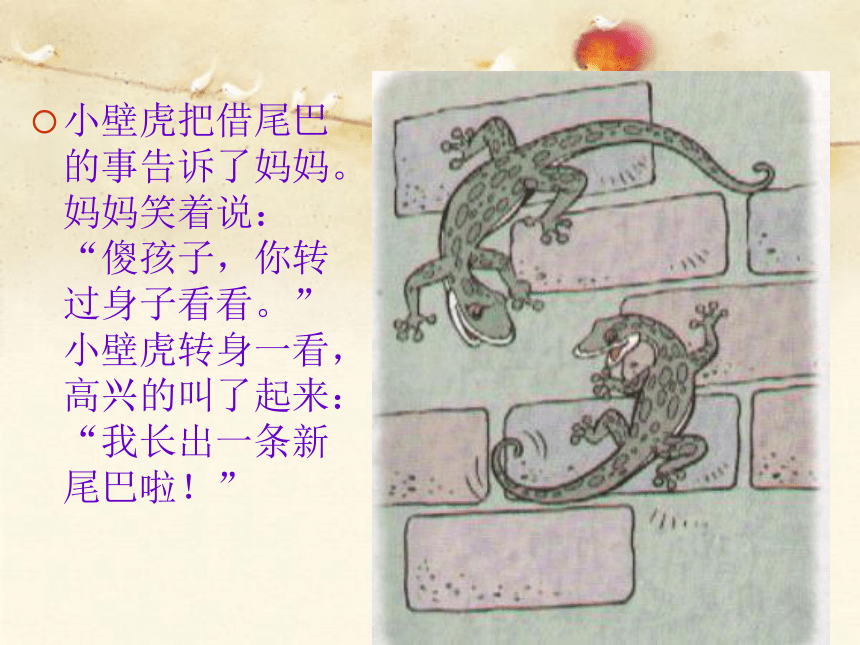 小壁虎把借尾巴
的事告诉了妈妈。
妈妈笑着说：
“傻孩子，你转
过身子看看。”
小壁虎转身一看，
高兴的叫了起来：
“我长出一条新
尾巴啦！”